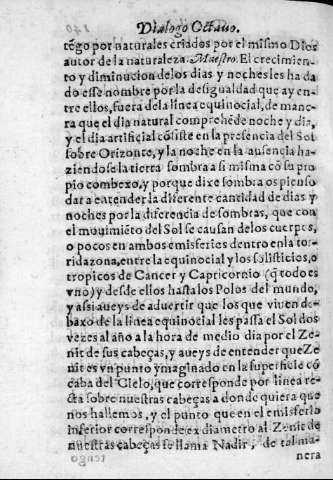 Dialogo Octauo.
tẽgo por naturales criados por el mismo Dios
autor de la naturaleza. Maestro. El crecimien-
to y diminucion de los dias y noches les ha da
do esse nombre por la desigualdad que ay en-
tre ellos, fuera dela linea equinocial, de mane-
ra que el dia natural comprehẽde noche y dia,
y el dia artificial cõsiste en la presencia del Sol
sobre Orizonte, y la noche en la ausencia ha-
ziendose la tierra sombra a si misma cõ su pro
pio combexo, y porque dixe sombra os pienso
dar a entender la diferente cantidad de dias y
noches por la diferencia de sombras, que con
el mouimiẽto del Sol se causan delos cuerpos,
o pocos en ambos emisferios dentro enla tor-
ridazona, entre la equinocial y los solisticios, o
tropicos de Cancer y Capricornio (q̃ todo es
vno) y desde ellos hasta los Polos del mundo,
y assi aueys de aduertir que los que viuen de-
baxo de la linea equinocial les passa el Sol dos
vezes al año a la hora de medio dia por el Ze-
nit de sus cabeças, y aueys de entender que Ze
nit es vn punto ymaginado en la superficie cõ
caba del Cielo, que corresponde por linea re-
cta sobre nuestras cabeças a donde quiera que
nos hallemos, y el punto que en el emisferio
inferior corresponde ex diametro al Zenit de
nuestras cabeças se llama Nadir, de tal ma-
nera